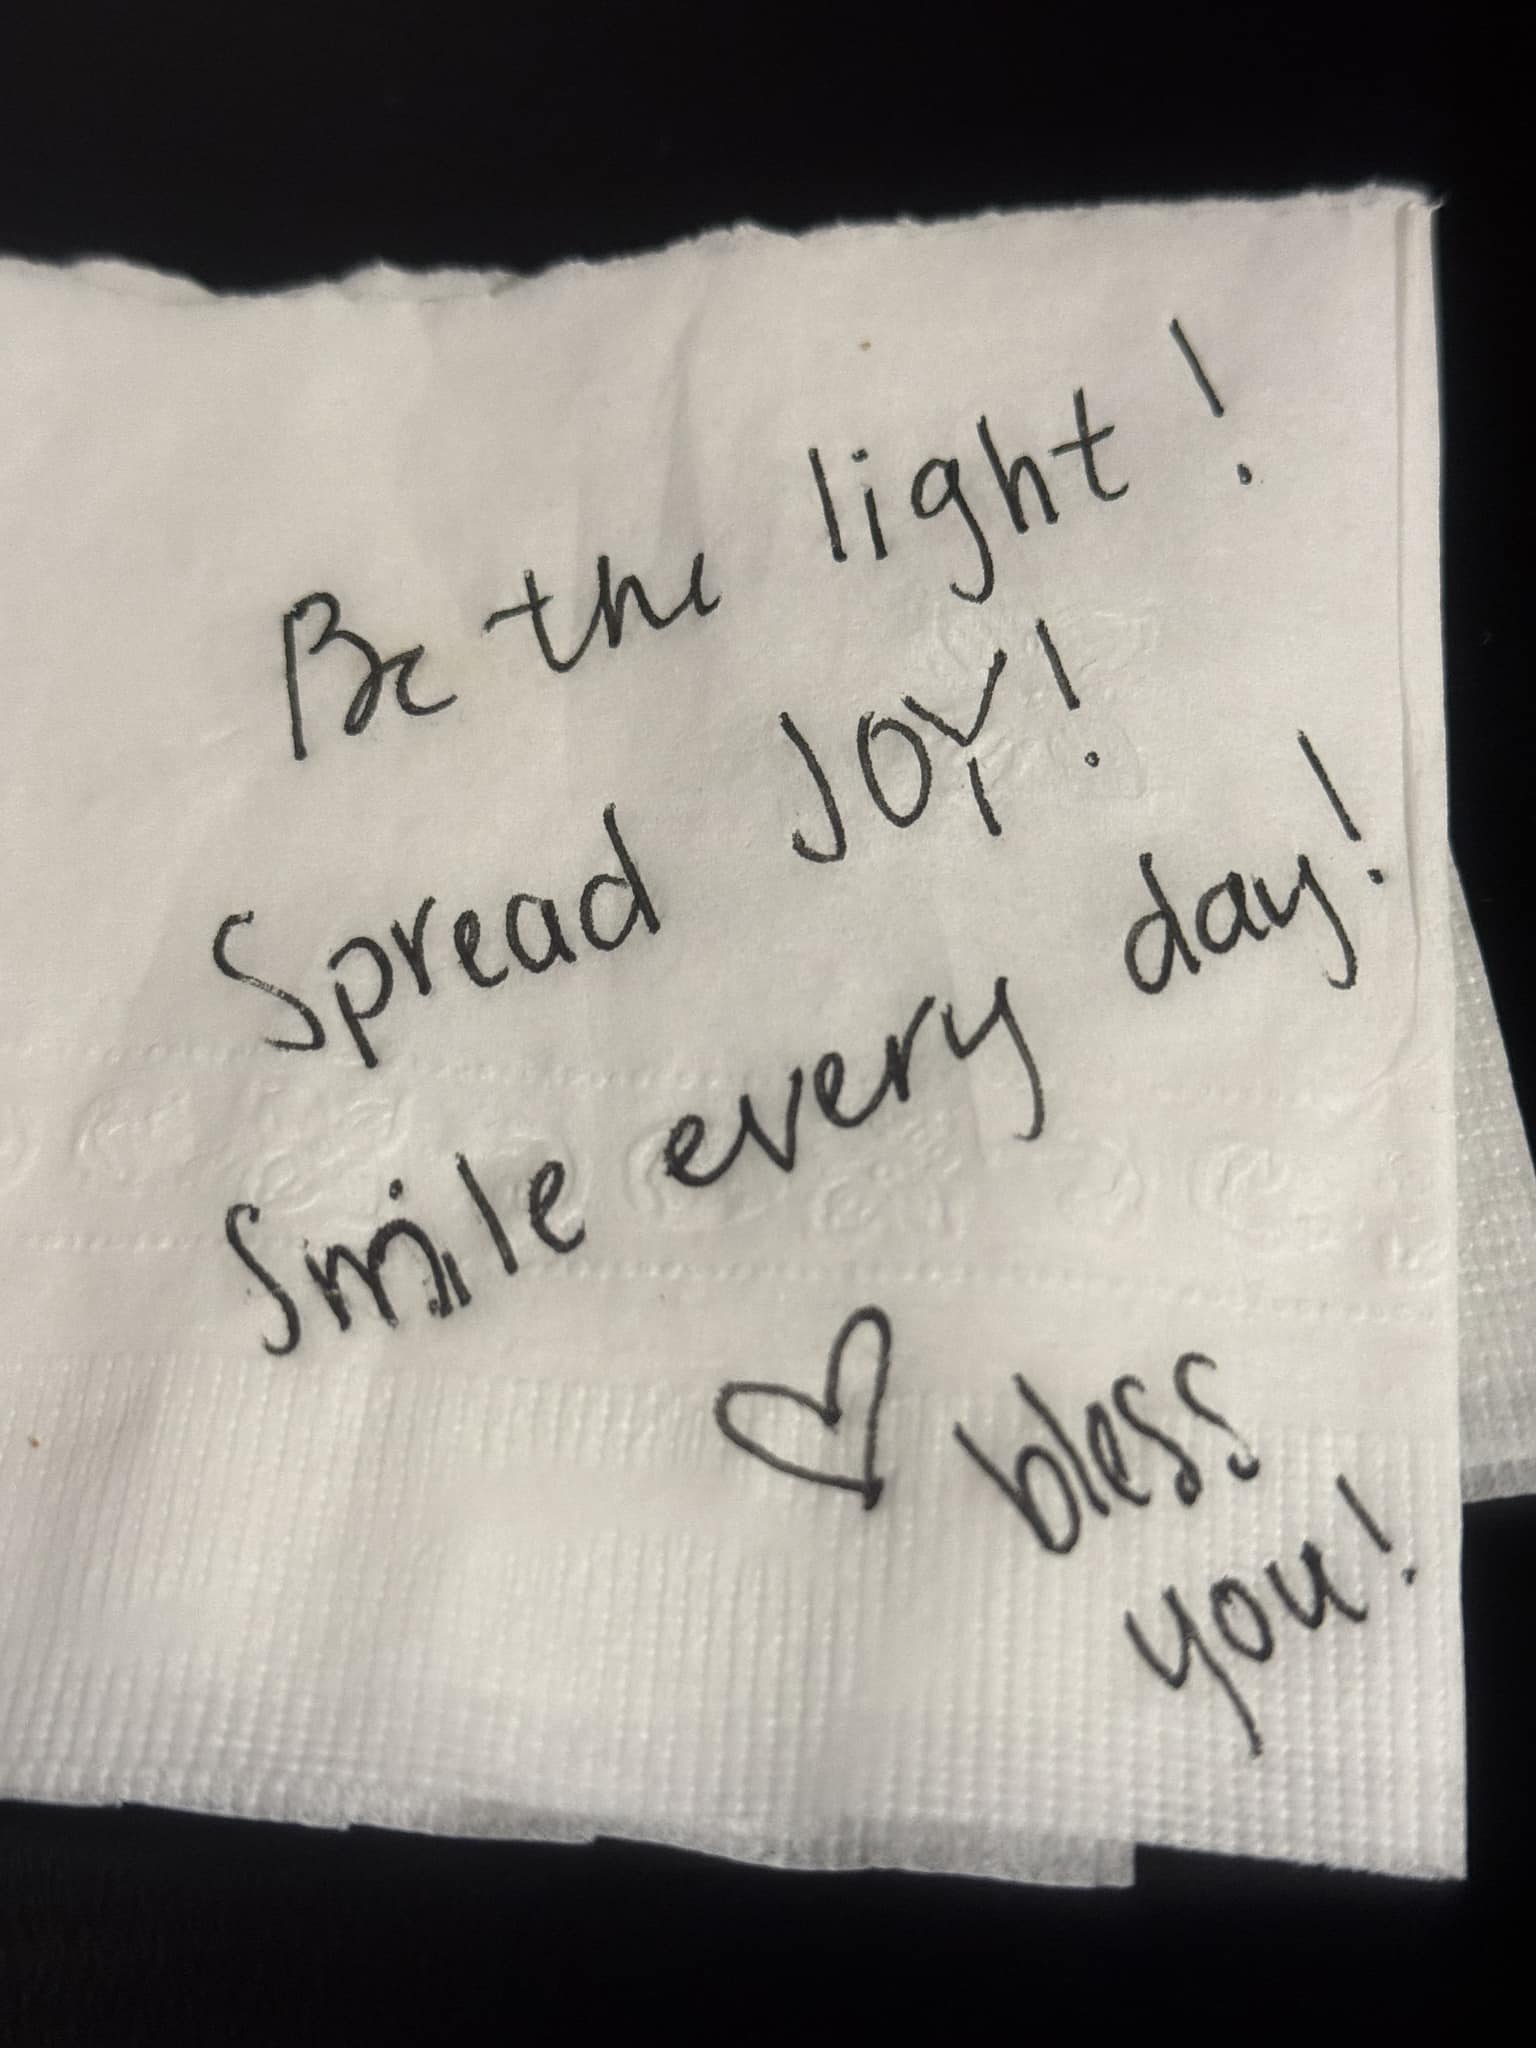 Be the light!
Spread JOY!
Smile every day!
♡ bless
you!